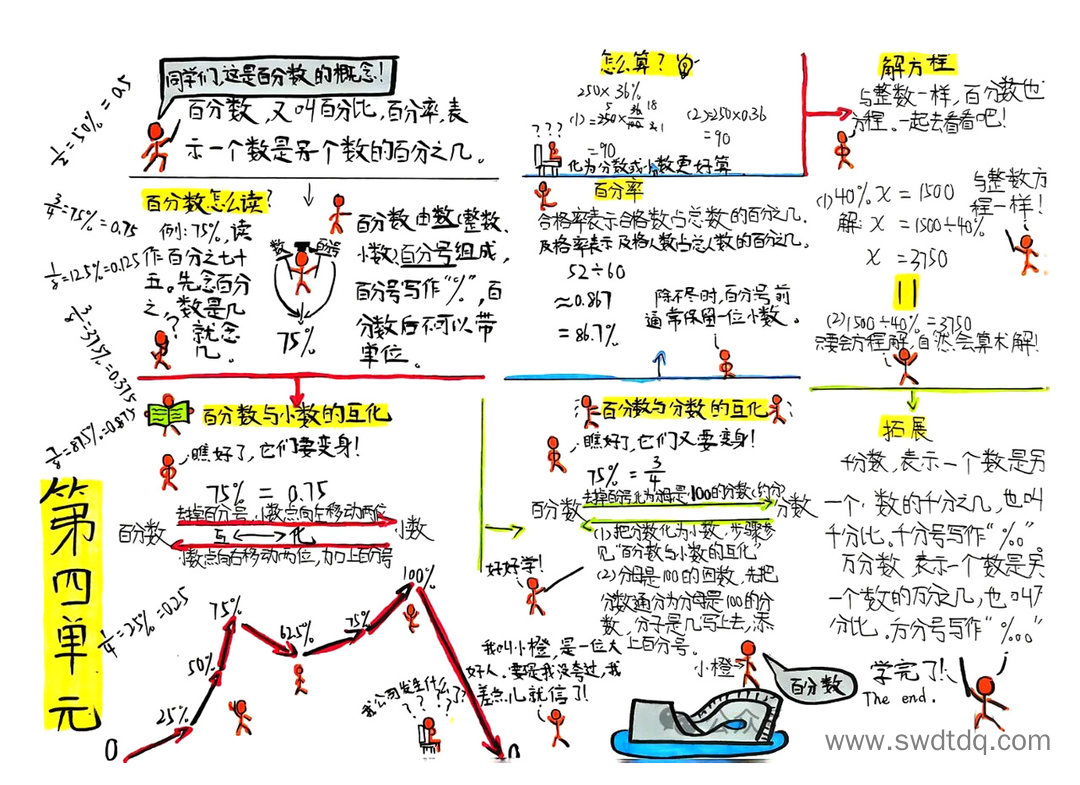 同学们,这是百分数的概念!
百分数,又叫百分比,百分率,表
示一个数是另个数的百分之几。
1/2=50%=0.5
3/4=75%=0.75
1/8=12.5%=0.125
3/8=37.5%=0.375
7/8=87.5%=0.875
1/4=25%=0.25
第四单元
百分数怎么读?
例:75%,读
作百分之七十
五。先念百分
之,数是几
就念
几。
?
数
百分号
75%
百分数由数(整数、
小数)百分号组成,
百分号写作“%”,百
分数后不可以带
单位。
百分数与小数的互化
瞧好了,它们要变身!
75% = 0.75
去掉百分号,小数点向左移动两位
百分数
互 化
小数
小数点向右移动两位,加上百分号
0
25%
50%
75%
62.5%
75%
100%
0
我公司发生什么
了?
? ? ?
怎么算?
250×36%
(1)=250×36/100
5
18
2 1
=90
(2)=250×0.36
=90
? ? ?
化为分数或小数更好算
百分率
合格率表示合格数占总数的百分之几.
及格率表示及格人数占总人数的百分之几。
52÷60
≈0.867
=86.7%
除不尽时,百分号前
通常保留一位小数。
百分数与分数的互化
瞧好了,它们又要变身!
75% = 3/4
去掉百分号化为分母是100的分数(约分)
百分数
分数
(1)把分数化为小数,步骤参
见“百分数与小数的互化”
(2)分母是100的因数,先把
分数通分为分母是100的分
数,分子是几写上去,添
上百分号。
好好学!
我叫小橙,是一位大
好人,要是我没夸过,我
差点儿就信了!
小橙
百分数
解方程
与整数一样,百分数也
方程。一起去看看吧!
(1)40% x = 1500
解: x = 1500÷40%
x = 3750
与整数方
程一样!
(2)1500÷40%=3750
只要会方程解,自然会算术解!
拓展
千分数,表示一个数是另
一个数的千分之几,也叫
千分比。千分号写作“‰”
万分数 表示一个数是另
一个数的万分之几,也叫万
分比。万分号写作“‱”
学完了!
The end.
www.swdtdq.com